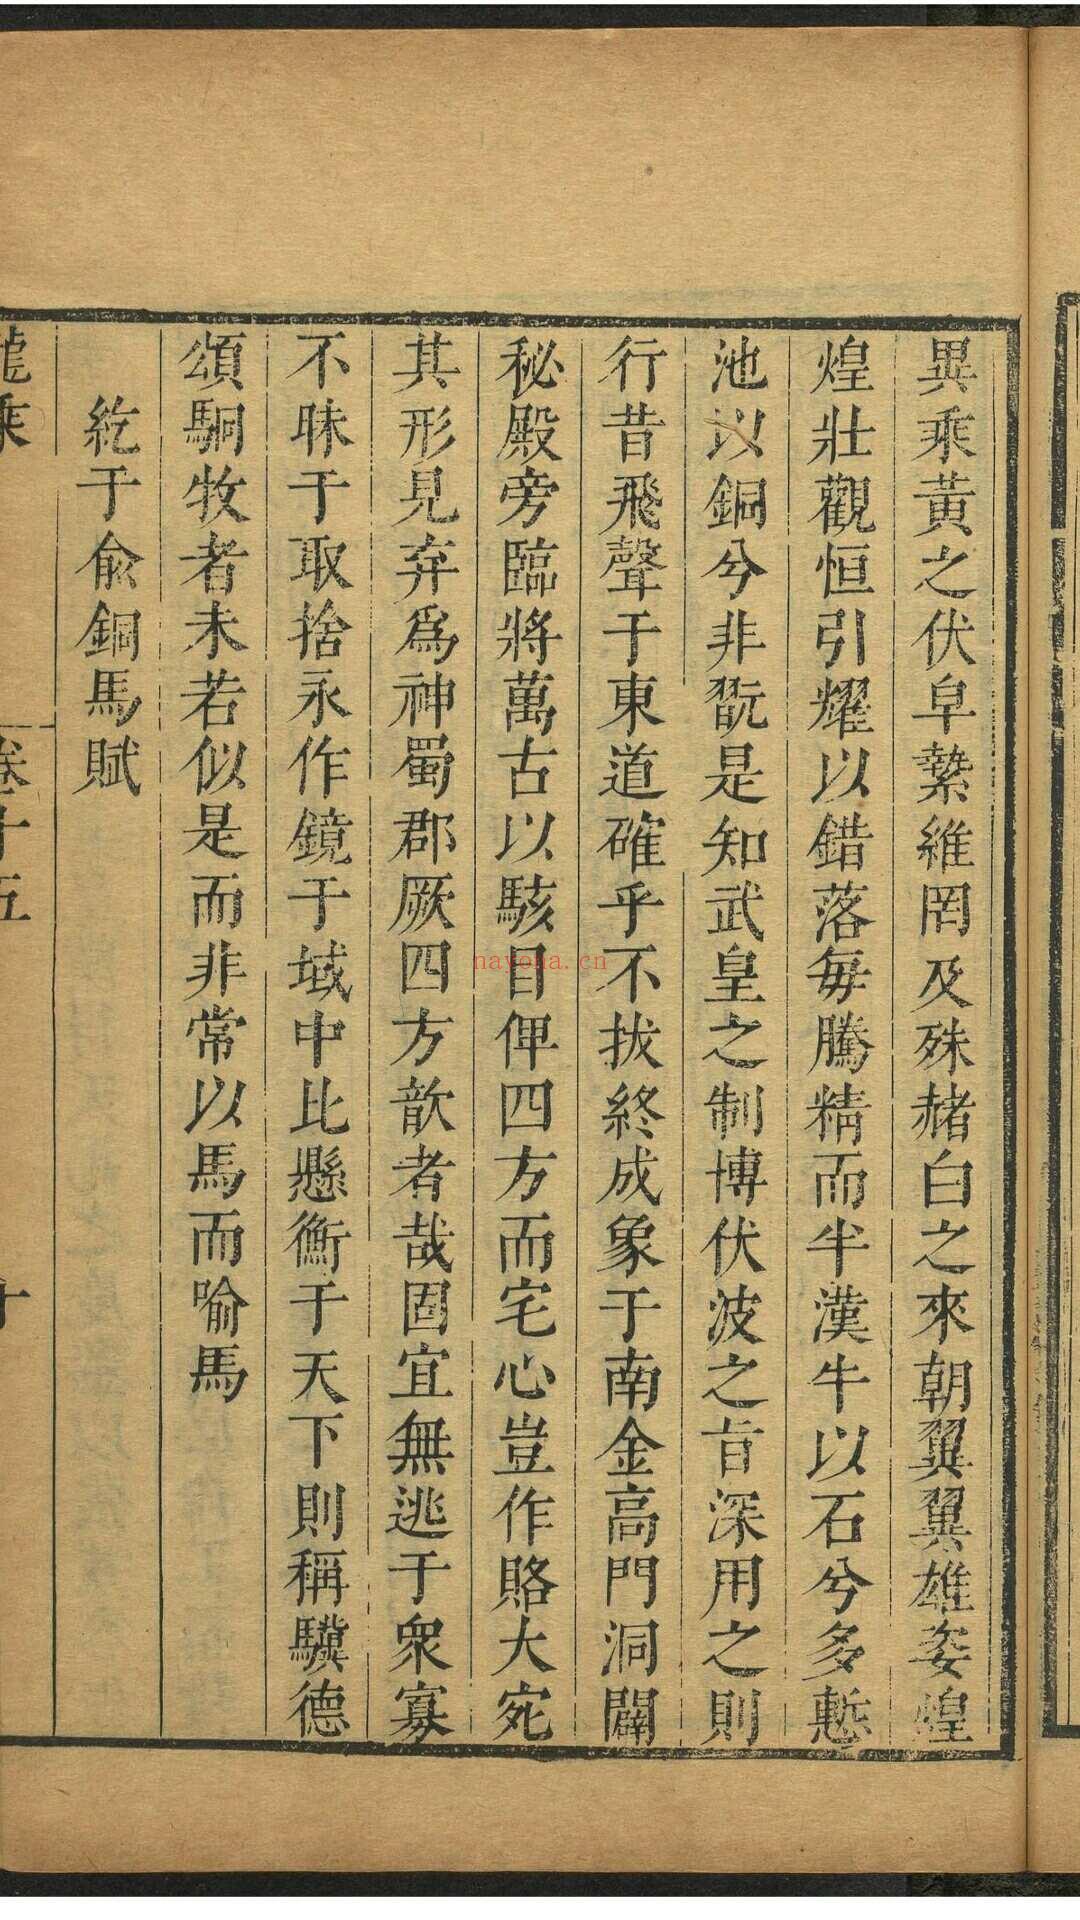 異乘黃之伏皁縶維罔及殊赭白之來朝翼翼雄姿煌
煌壯觀恒引耀以錯落每騰精而半漢牛以石兮多慙
池以銅兮非翫是知武皇之制博伏波之旨深用之則
行昔飛聲于東道確乎不拔終成象于南金高門洞闢
秘殿旁臨將萬古以駭目俾四方而宅心豈作賂大宛
其形見弃爲神蜀郡厥四方歆者哉固宜無逃于衆寡
不昧于取捨永作鏡于域中比懸衡于天下則稱驥德
頌駉牧者未若似是而非常以馬而喻馬
紇于俞銅馬賦
龍乘
卷十五
十
nayona.cn